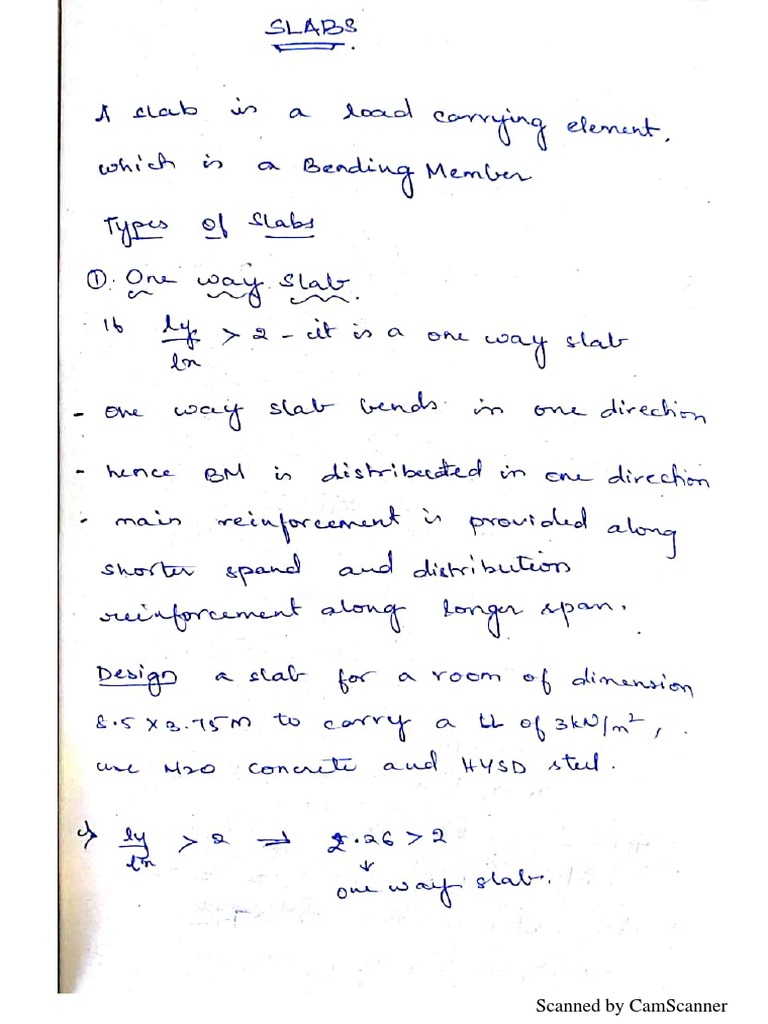 SLABS
A slab is a load carrying element,
which is a Bending Member
Types of Slabs
①. One way slab.
If ly/lx > 2 - it is a one way slab
- one way slab bends in one direction
- hence BM is distributed in one direction
- main reinforcement is provided along
shorter spand and distribution
reinforcement along longer span.
Design a slab for a room of dimension
8.5 x 3.75M to carry a LL of 3kN/m²,
use M20 concrete and HYSD steel.
ly/lx > 2 ⇒ 2.26 > 2
↓
one way slab.
Scanned by CamScanner